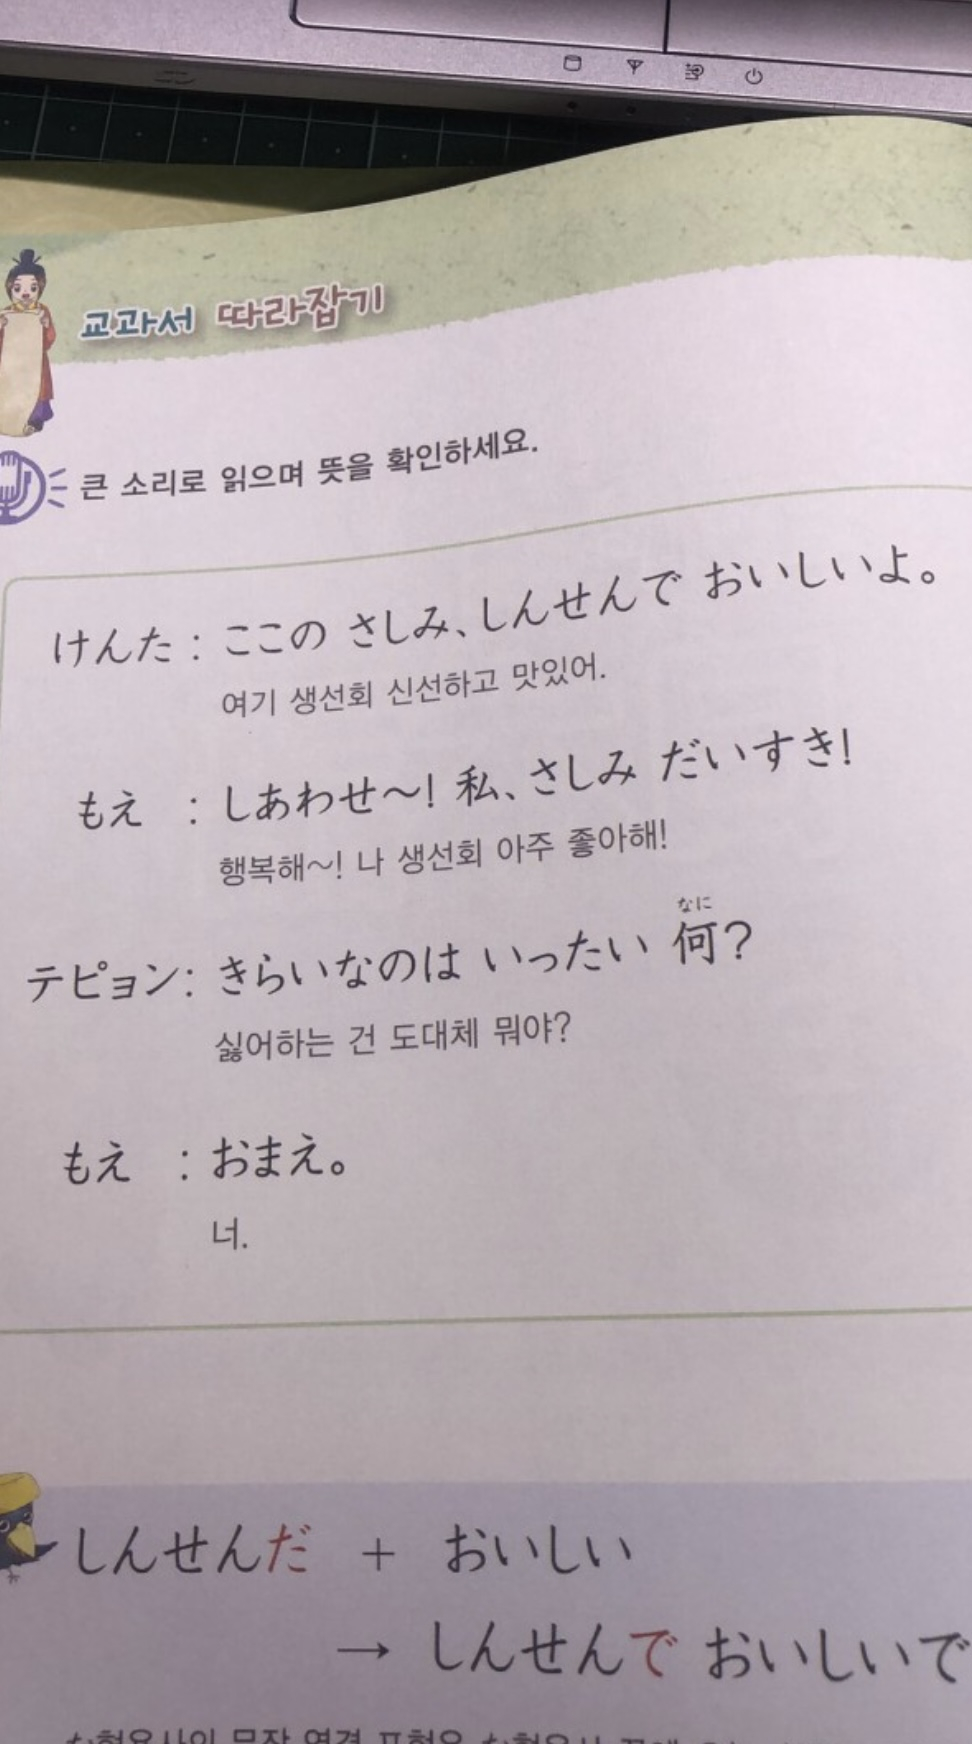 교과서 따라잡기
큰 소리로 읽으며 뜻을 확인하세요.
けんた : ここの さしみ、しんせんで おいしいよ。
여기 생선회 신선하고 맛있어.
もえ : しあわせ〜! 私、さしみ だいすき!
행복해~! 나 생선회 아주 좋아해!
なに
テピョン: きらいなのは いったい 何?
싫어하는 건 도대체 뭐야?
もえ : おまえ。
너.
しんせんだ + おいしい
→ しんせんで おいしいで
な형용사의 문장 연결 표현은 な형용사